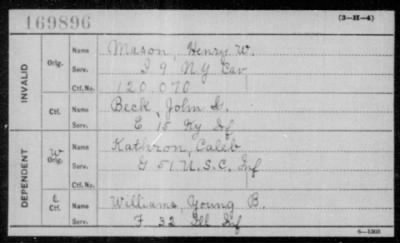 169896
(3-H-4)
INVALID
Orig.
Name Mason, Henry W.
Serv. I 9 N.Y Cav
Ctf. No. 120.070
Ctf.
Name Beck, John G.
Serv. E 15 Ky If
DEPENDENT
W Orig.
Name Kathron, Caleb
Serv. G 51 U.S.C. Inf
Ctf. No.
Ctf.
Name Williams, Young B.
Serv. F 32 Ill Inf
6-1303